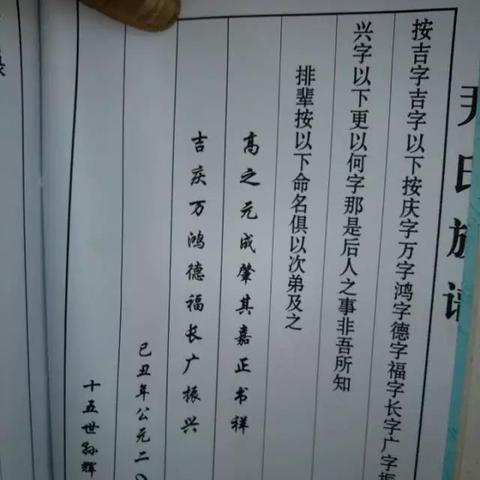 氏族谱
按吉字吉字以下按庆字万字鸿字德字福字长字广字振
兴字以下更以何字那是后人之事非吾所知
排辈按以下命名俱以次弟及之
高之元成肇其嘉正书祥
吉庆万鸿德福长广振兴
己丑年公元二〇
十五世孙辉